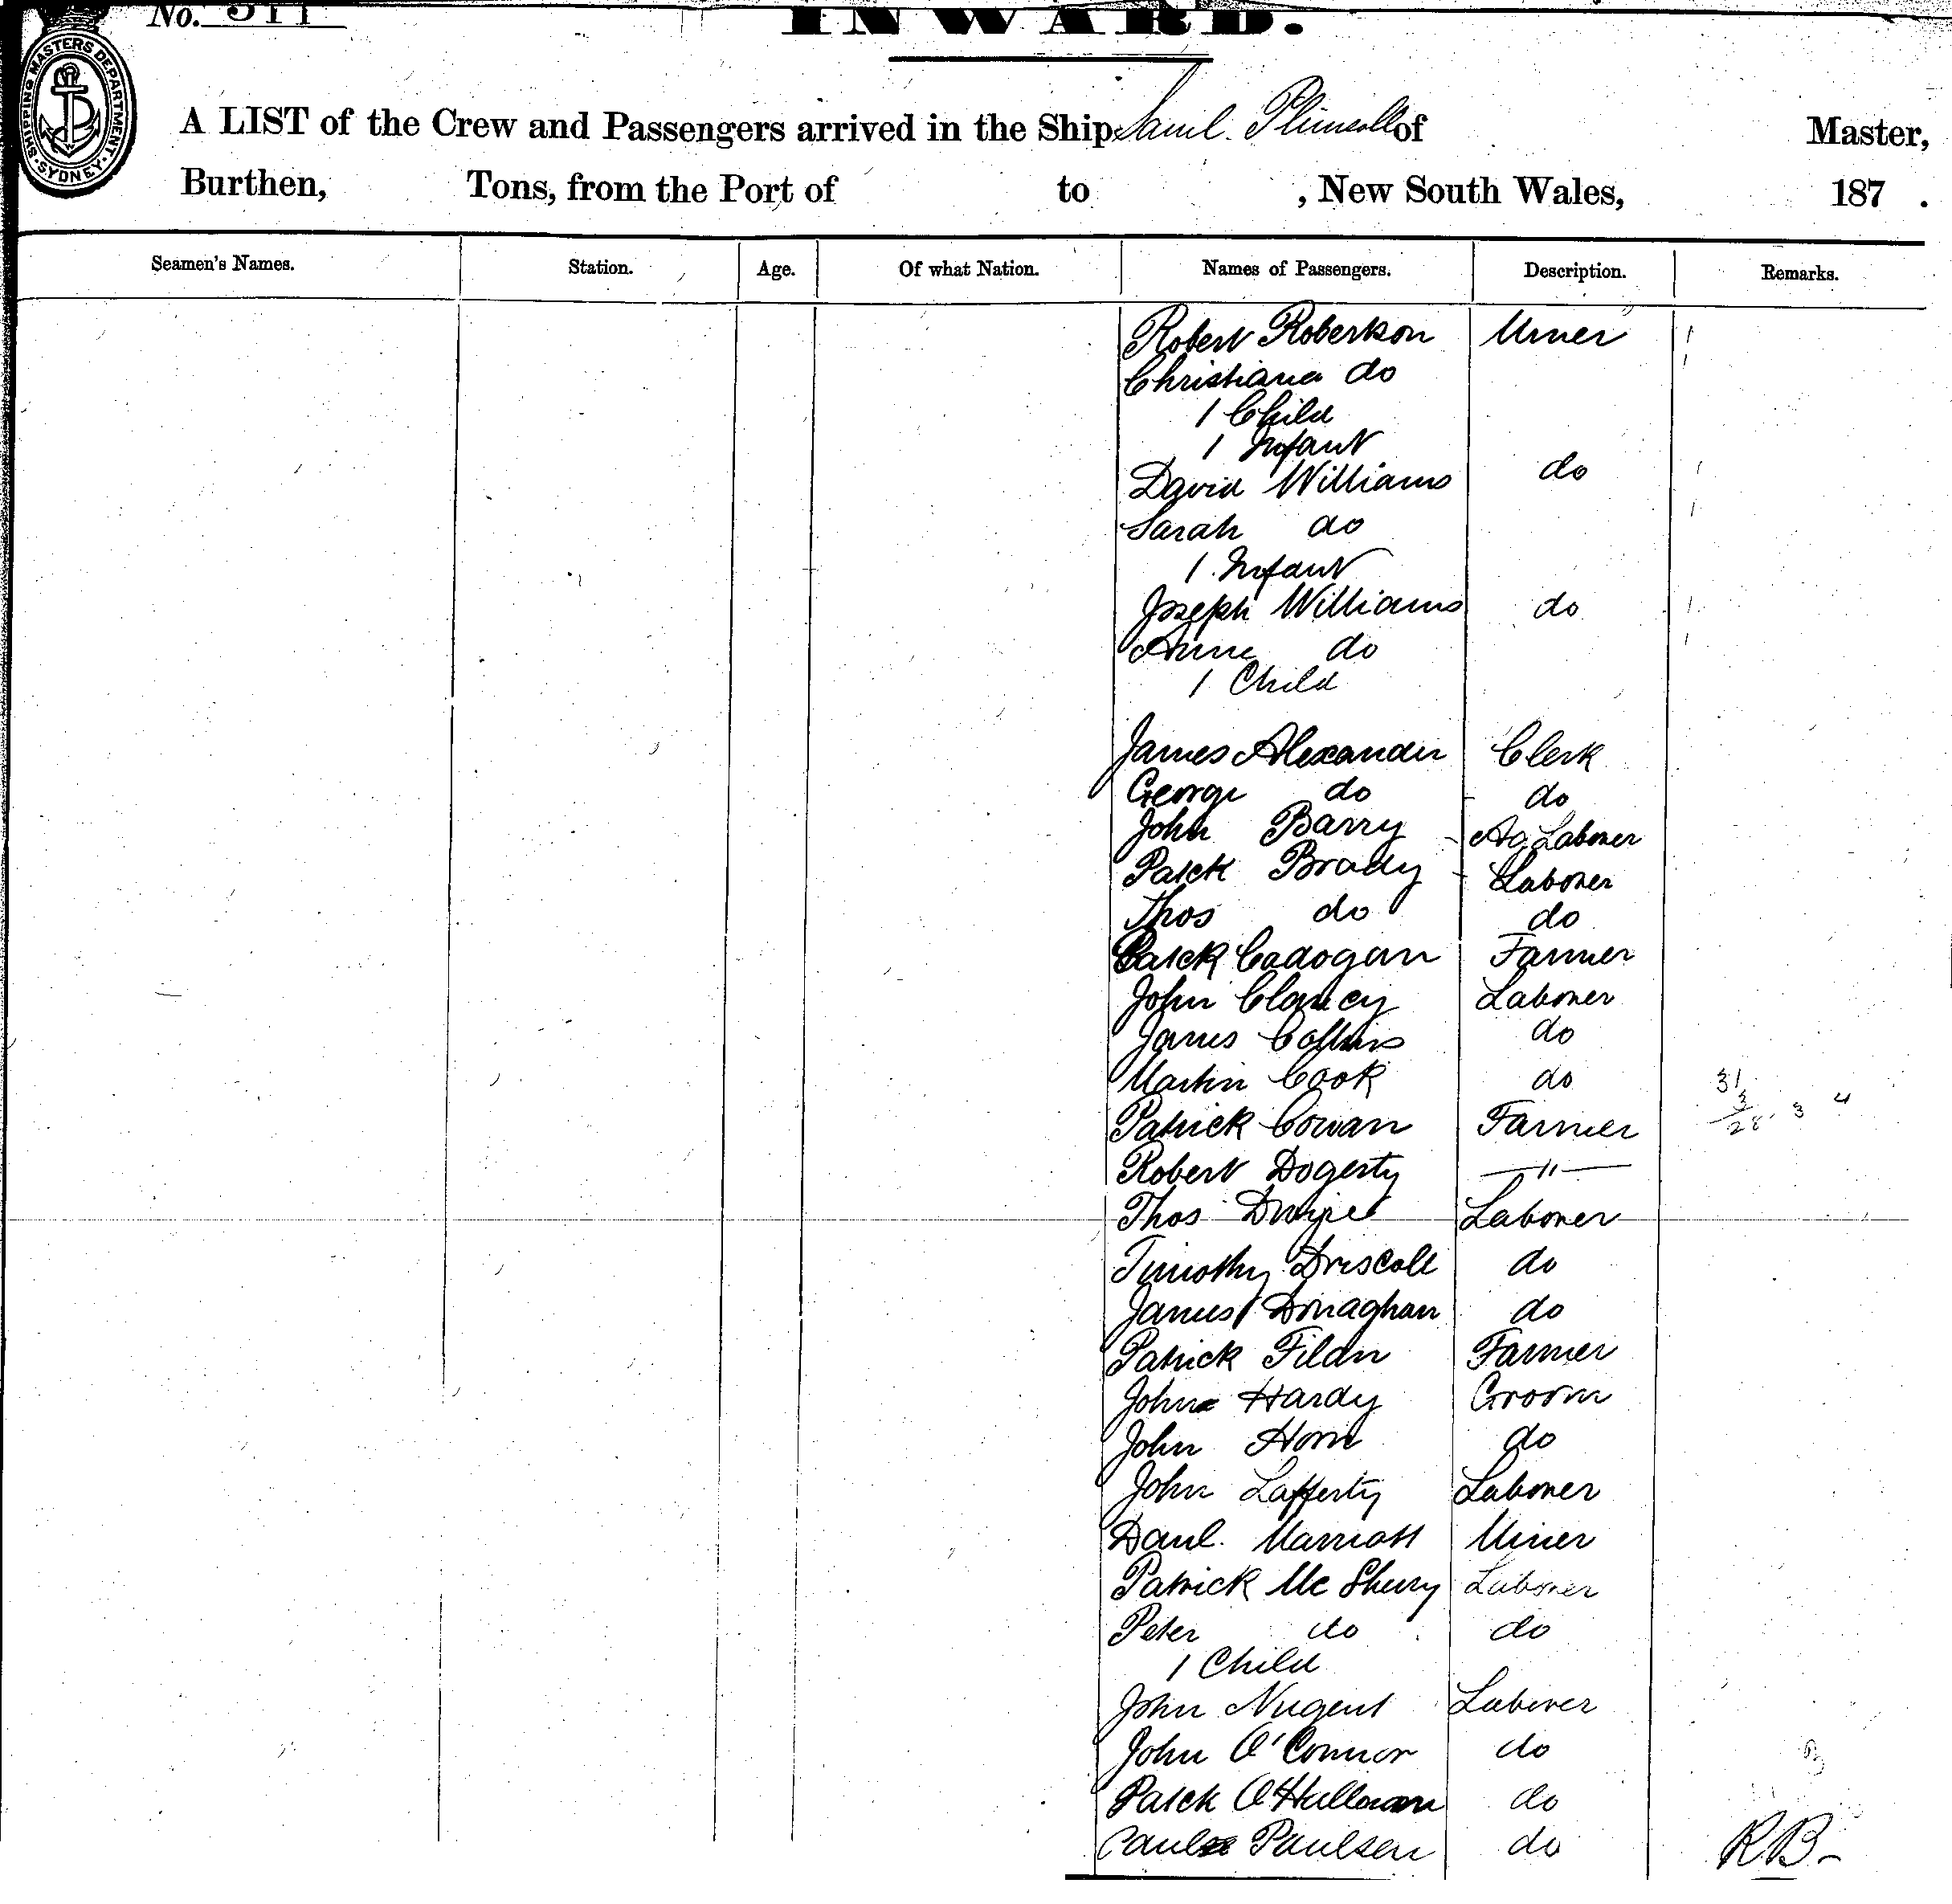 No. 511
INWARD.
SHIPPING MASTERS DEPARTMENT. SYDNEY.
A LIST of the Crew and Passengers arrived in the Ship Saml. Plimsoll of Master,
Burthen, Tons, from the Port of to , New South Wales, 187 .
Seamen's Names. Station. Age. Of what Nation. Names of Passengers. Description. Remarks.
Robert Robertson Miner 1
Christiana do 1
1 Child
1 Infant
David Williams do 1
Sarah do 1
1 Infant
Joseph Williams do 1
Anne do 1
1 Child
James Alexander Clerk
George do do
John Barry Ag Laborer
Patck Brady Laborer
Thos do do
Patck Cadogan Farmer
John Clancy Laborer
James Collins do
Martin Cook do 31
Patrick Cowan Farmer 3 28 3 4
Robert Dogerty —"—
Thos Dwyer Laborer
Timothy Driscoll do
James Donaghan do
Patrick Farmer
John Hardy Groom
John Horn do
John Lafferty Laborer
Danl. Marriott Miner
Patrick McSherry Laborer
Peter do do
1 Child
John Nugent Laborer
John O'Connor do
Patck do
Paul Paulsen do RB-